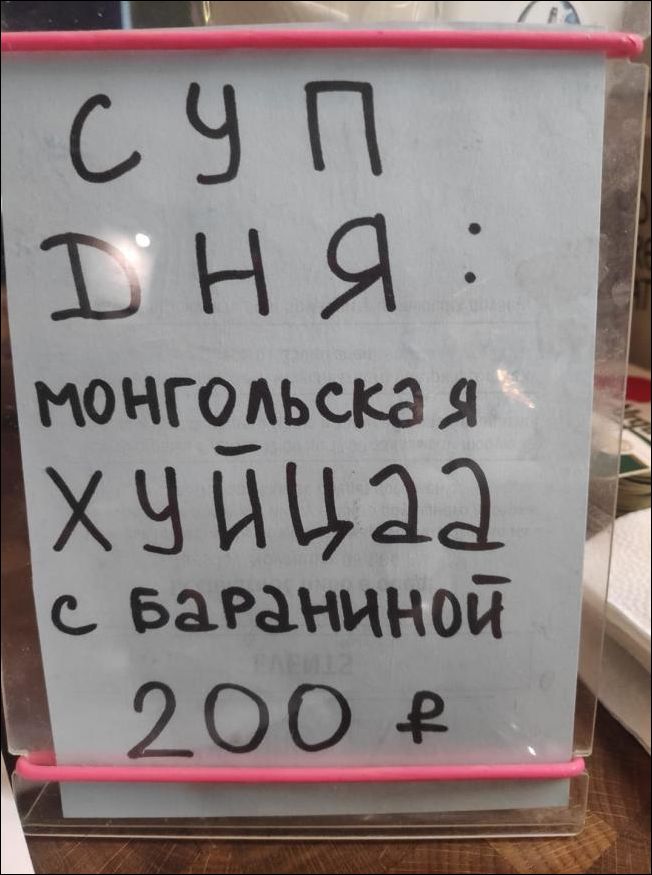 СУП
ДНЯ:
монгольская
ХУЙЦаа
с БаРаНИНОЙ
200 ₽